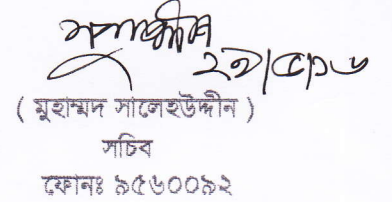 ২৭/৫/১৬
( মুহাম্মদ সালেহউদ্দীন )
সচিব
ফোনঃ ৯৫৬০০৯২